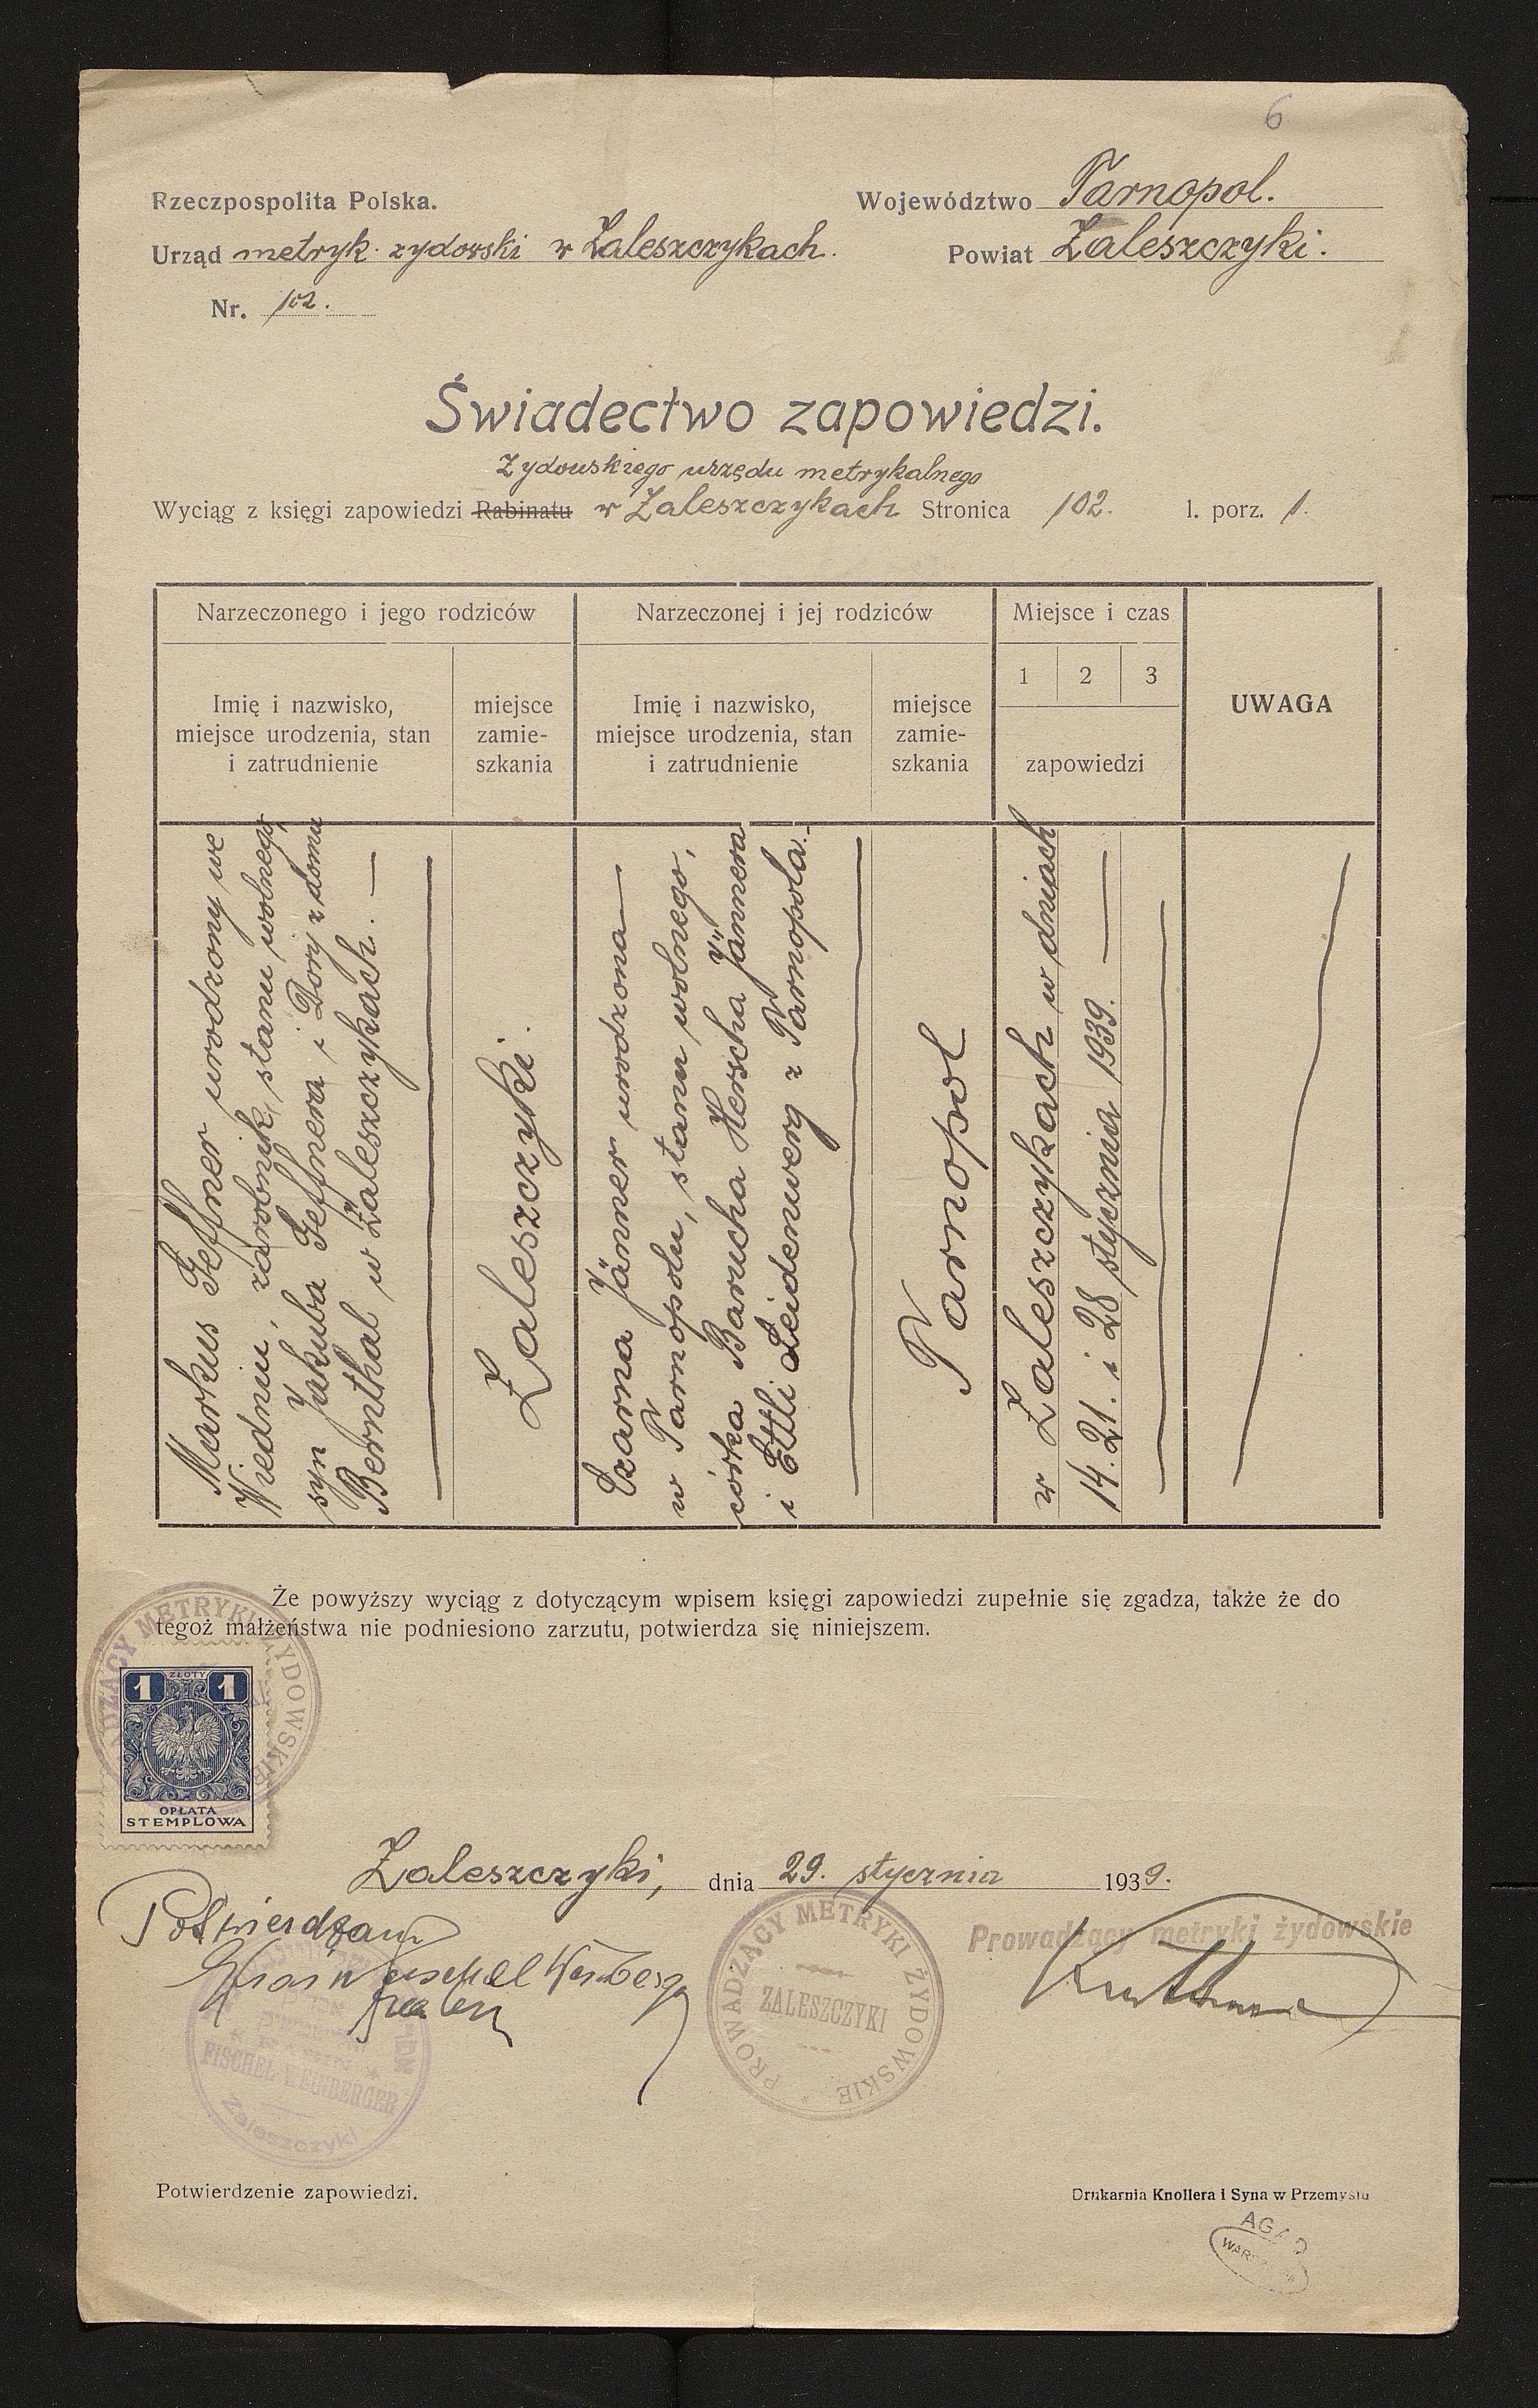 6
Rzeczpospolita Polska.
Województwo Tarnopol.
Urząd metryk. zydowski w Zaleszczykach.
Powiat Zaleszczyki.
Nr. 102.
Świadectwo zapowiedzi.
Zydowskiego urzędu metrykalnego
Wyciąg z księgi zapowiedzi Rabinatu w Zaleszczykach Stronica 102. l. porz. 1.
Narzeczonego i jego rodziców
Narzeczonej i jej rodziców
Miejsce i czas
UWAGA
1 2 3
zapowiedzi
Imię i nazwisko,
miejsce urodzenia, stan
i zatrudnienie
miejsce
zamie-
szkania
Imię i nazwisko,
miejsce urodzenia, stan
i zatrudnienie
miejsce
zamie-
szkania
Markus Feffner urodzony we
Wiedniu, zarobnik, stanu wolnego,
syn Jakuba Feffnera i Dory z domu
Bernthal w Zaleszczykach.
Zaleszczyki.
Czarna Jänner urodzona
w Tarnopolu, stanu wolnego,
córka Barucha Herscha Jännera
i Ettli Seidenwerg z Tarnopola.
Tarnopol
w Zaleszczykach w dniach
14. 21. i 28 stycznia 1939.
Że powyższy wyciąg z dotyczącym wpisem księgi zapowiedzi zupełnie się zgadza, także że do
tegoż małżeństwa nie podniesiono zarzutu, potwierdza się niniejszem.
PROWADZĄCY METRYKI ŻYDOWSKIE
1 ZŁOTY 1
OPŁATA
STEMPLOWA
Zaleszczyki, dnia 29. stycznia 1939.
Potwierdzam
Prowadzący metryki żydowskie
PROWADZĄCY METRYKI ŻYDOWSKIE
ZALESZCZYKI
FISCHEL WEINBERGER
Zaleszczyki
Potwierdzenie zapowiedzi.
Drukarnia Knollera i Syna w Przemyślu
AGAD
WARSZAWA